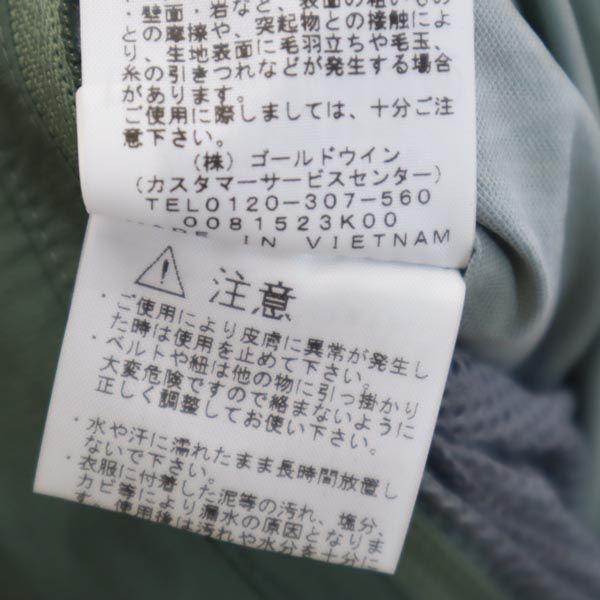 ・壁面・岩など、表面の粗いもの
との摩擦や、突起物との接触によ
り、生地表面に毛羽立ちや毛玉、
糸の引きつれなどが発生する場合
があります。
ご使用に際しましては、十分ご注
意下さい。
(株) ゴールドウイン
(カスタマーサービスセンター)
TEL0120-307-560
0081523K00
MADE IN VIETNAM
注意
・ご使用により皮膚に異常が発生し
た時は使用を止めて下さい。
・ベルトや紐は他の物に引っ掛かり
大変危険ですので絡まないように
正しく調整してお使い下さい。
・水や汗に濡れたまま長時間放置し
ないで下さい。
・衣服に付着した泥等の汚れ、塩分、
カビ等により漏水の原因となりま
す。使用後は汚れや水分を十分